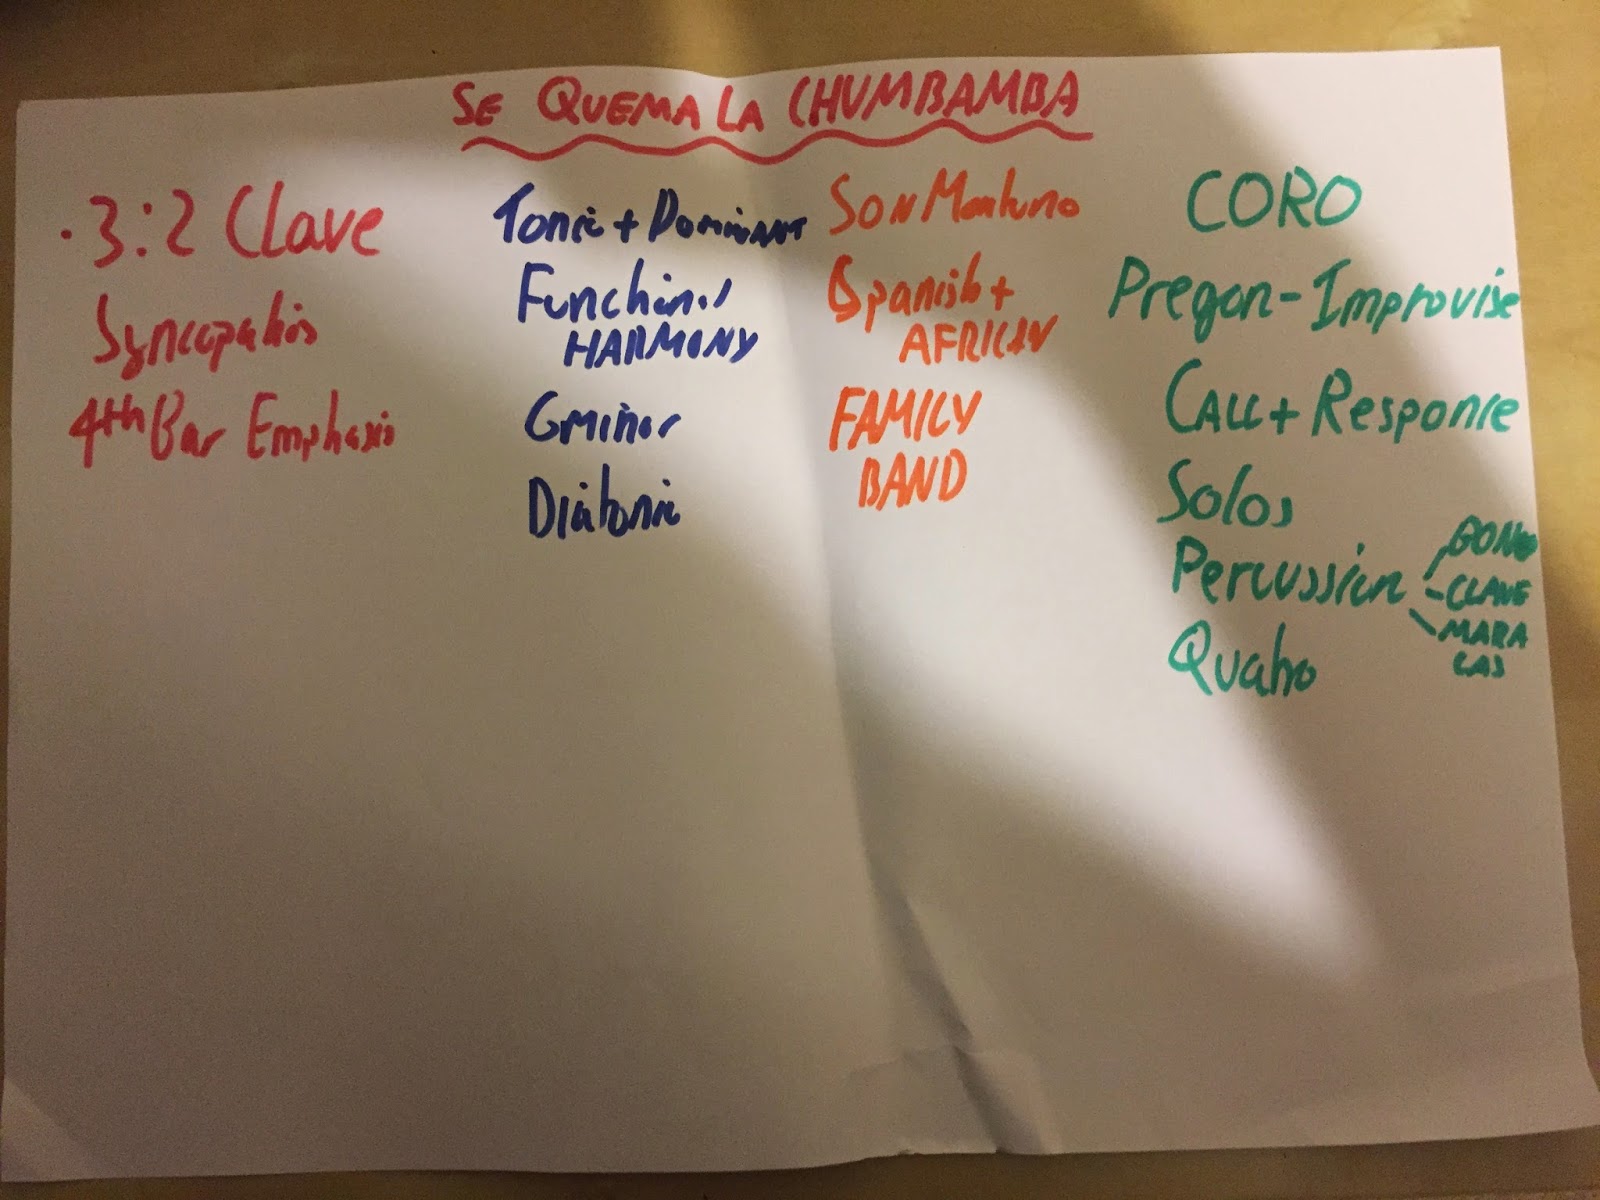 SE QUEMA LA CHUMBAMBA
· 3:2 Clave
Syncopation
4th Bar Emphaxis
Tonic + Dominant
Functional
HARMONY
Gminor
Diatonic
SON Montuno
Spanish +
AFRICAN
FAMILY
BAND
CORO
Pregon - Improvise
CALL + Response
Solos
Percussion
BONGO
- CLAVE
MARA
CAS
Quatro